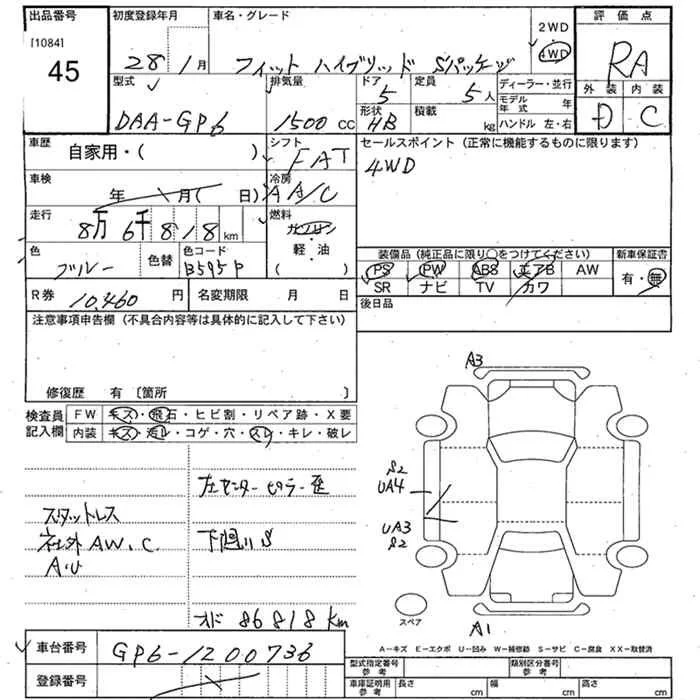 出品番号 初度登録年月 車名・グレード 評価点
[1084]
45
28年1月 フィット ハイブリッド Sパッケージ 2WD 4WD RA
型式 排気量 ドア 定員 ディーラー・並行 外装 内装
DAA-GP6 1500cc 5 5人 モデル年式 年 D C
形状 積載 ハンドル 左・右
HB kg
車歴 自家用・( ) シフト FAT セールスポイント (正常に機能するものに限ります)
4WD
車検 年 月( 日) 冷房 AA/C
走行 8万6千818km 燃料 ガソリン
軽・油
( )
色 ブルー 色替 色コード B595P
装備品 (純正品に限り○をつけてください) 新車保証書
PS PW ABS エアB AW 有・無
SR ナビ TV カワ
R券 10,460円 名変期限 月 日 後日品
注意事項申告欄 (不具合内容等は具体的に記入して下さい)
修復歴 有 〔箇所 〕
検査員記入欄 FW キズ・飛石・ヒビ割・リペア跡・X要
内装 キズ・汚レ・コゲ・穴・スレ・キレ・破レ
A3
左センターピラー歪
S2
UA4
スタットレス
社外AW、C
下廻りS
UA3
S2
オド 86818km
スペア
A1
A-キズ E-エクボ U-凹み W-補修跡 S-サビ C-腐食 XX-取替済
車台番号 GP6-1200736
登録番号
型式指定番号 参考 類別区分番号 参考
車庫証明用 参考 長さ cm 幅 cm 高さ cm